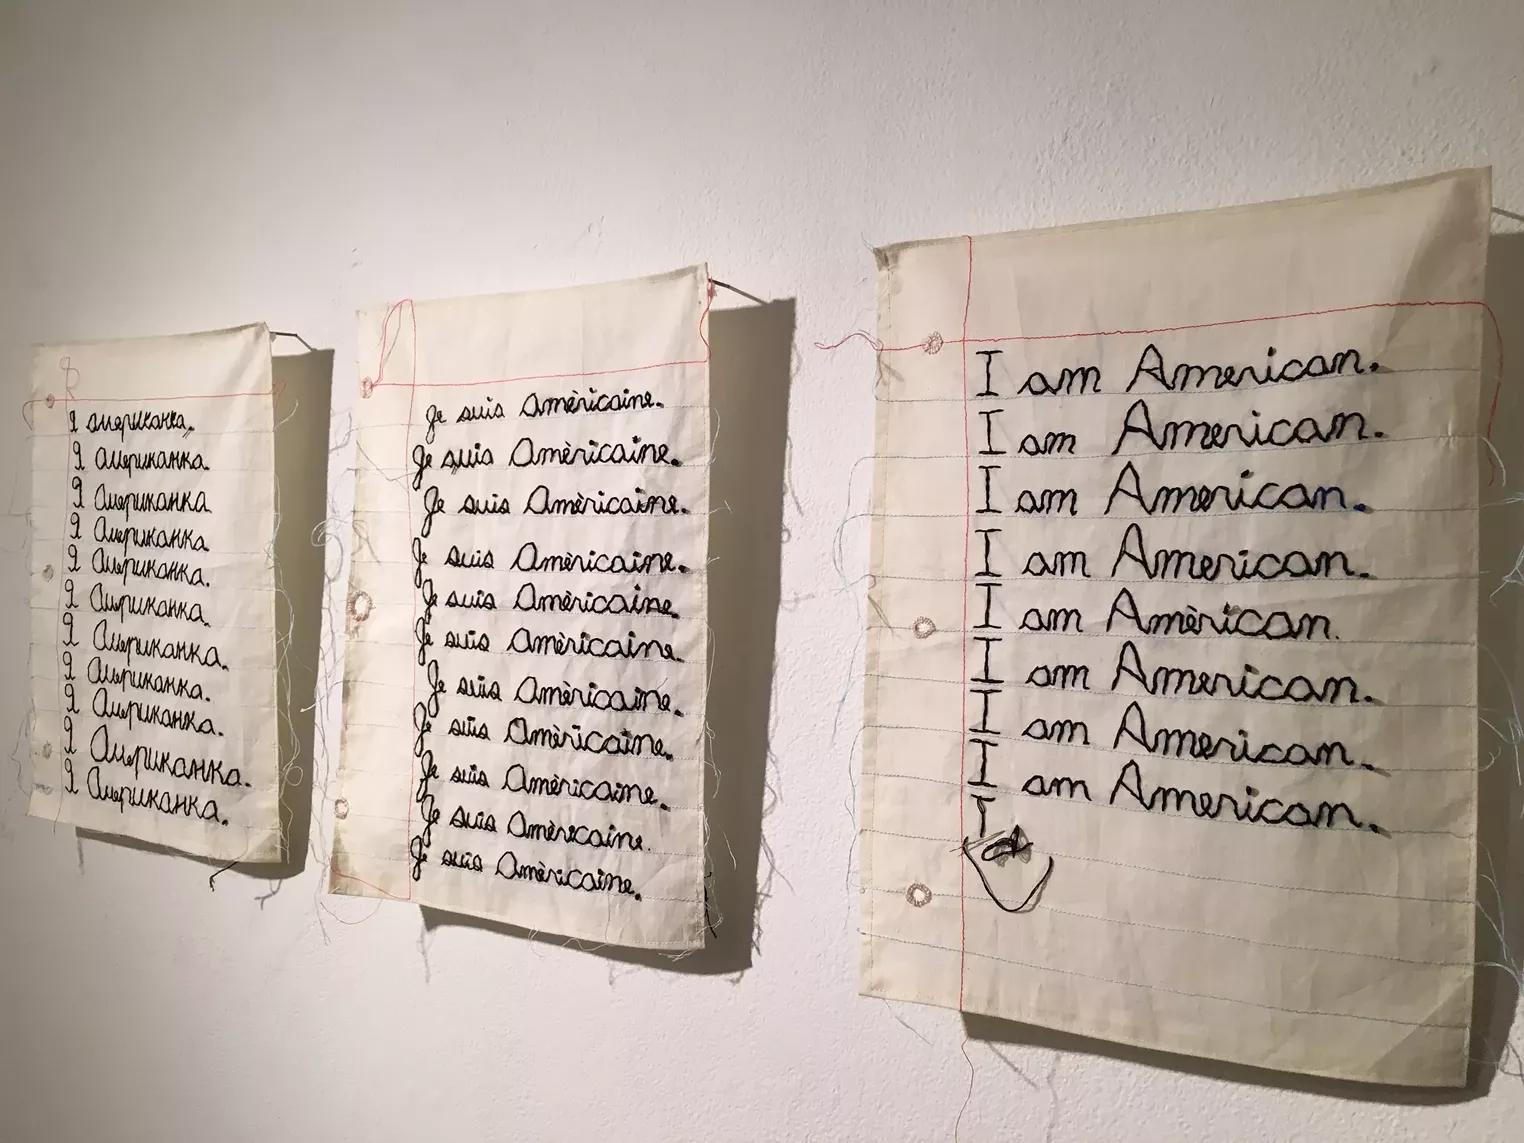 Я американка.
Я Американка.
Я Американка
Я Американка
Я Американка.
Я Американка.
Я Американка.
Я Американка.
Я Американка.
Я Американка.
Я Американка.
Je suis Amèricaine.
Je suis Amèricaine.
Je suis Amèricaine.
Je suis Amèricaine.
Je suis Amèricaine.
Je suis Amèricaine.
Je suis Amèricaine.
Je suis Amèricaine.
Je suis Amèricaine.
Je suis Amèricaine.
Je suis Amèricaine.
I am American.
I am American.
I am American.
I am American.
I am Amèrican.
I am American.
I am American.
I am American.
I a